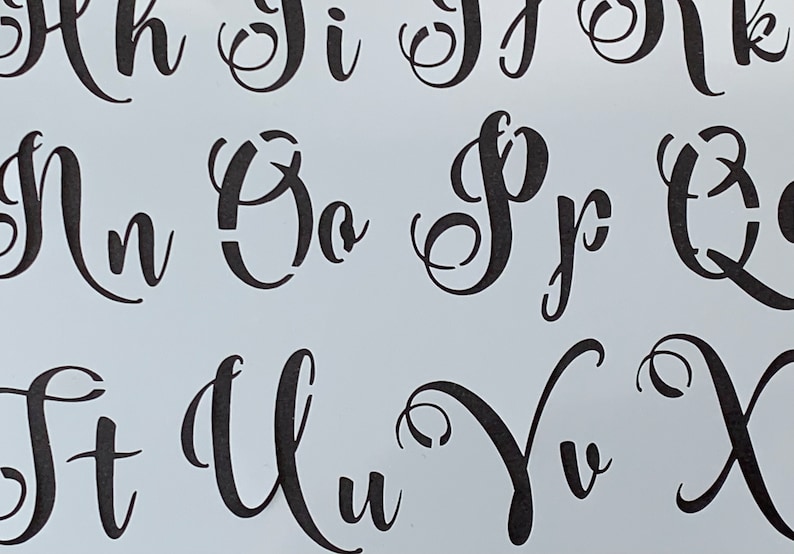 Hh Ii Jj Kk
Nn Oo Pp Q
Tt Uu Vv X